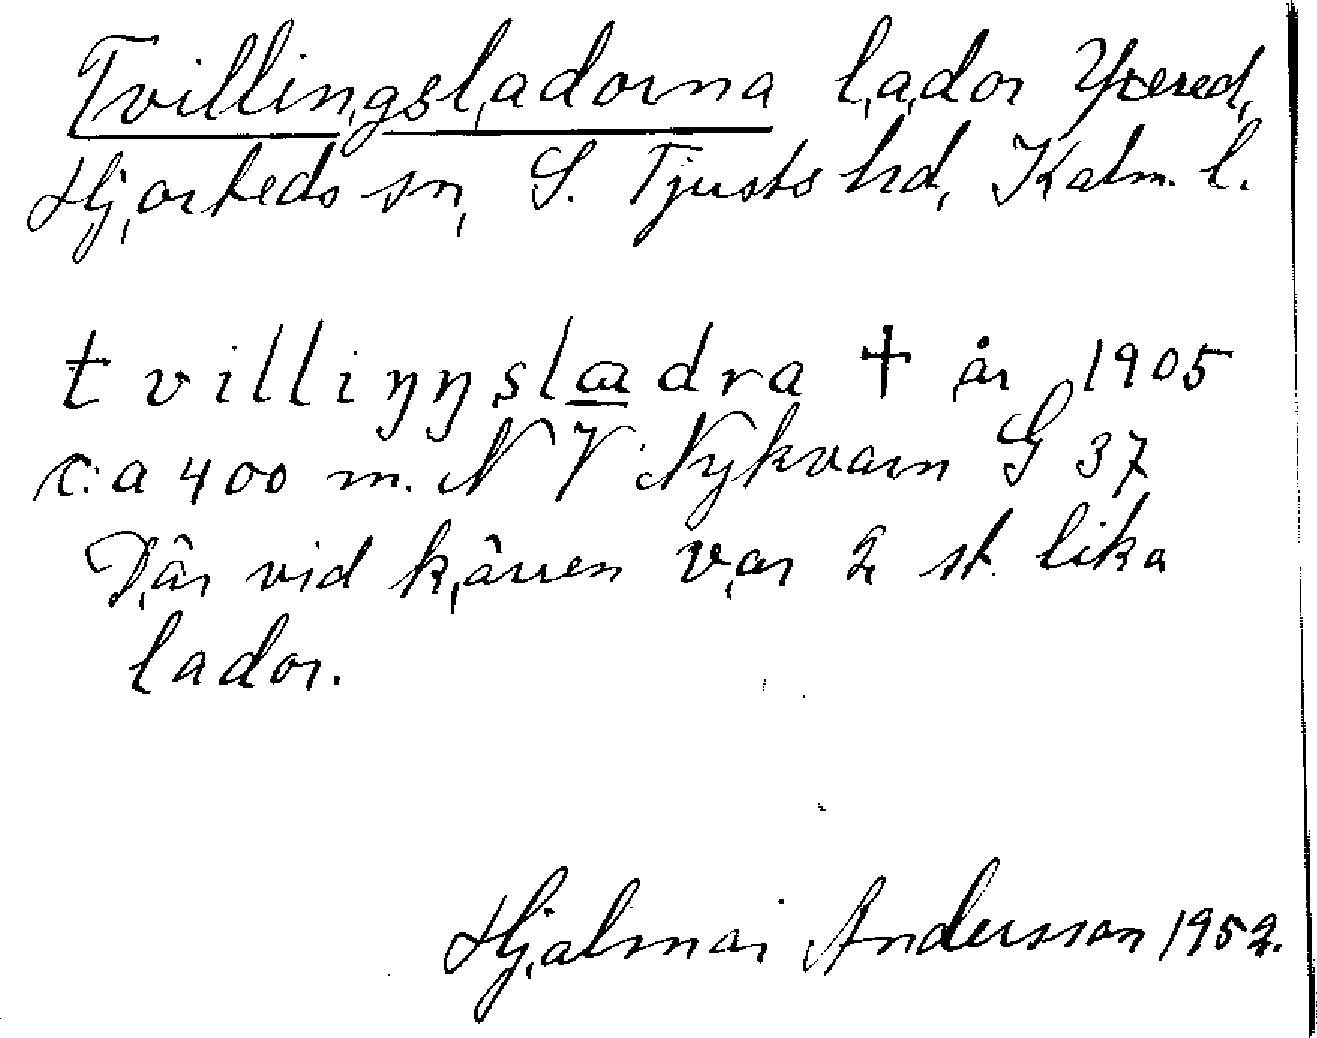 Tvillingsladorna lador Yxered,
Hjorteds sn, S. Tjusts hd, Kalm. l.
tvilliŋŋslɑdra † år 1905
c:a 400 m. N V Nykvarn G 37
Där vid kärren var 2 st. lika
lador.
Hjalmar Andersson 1952.